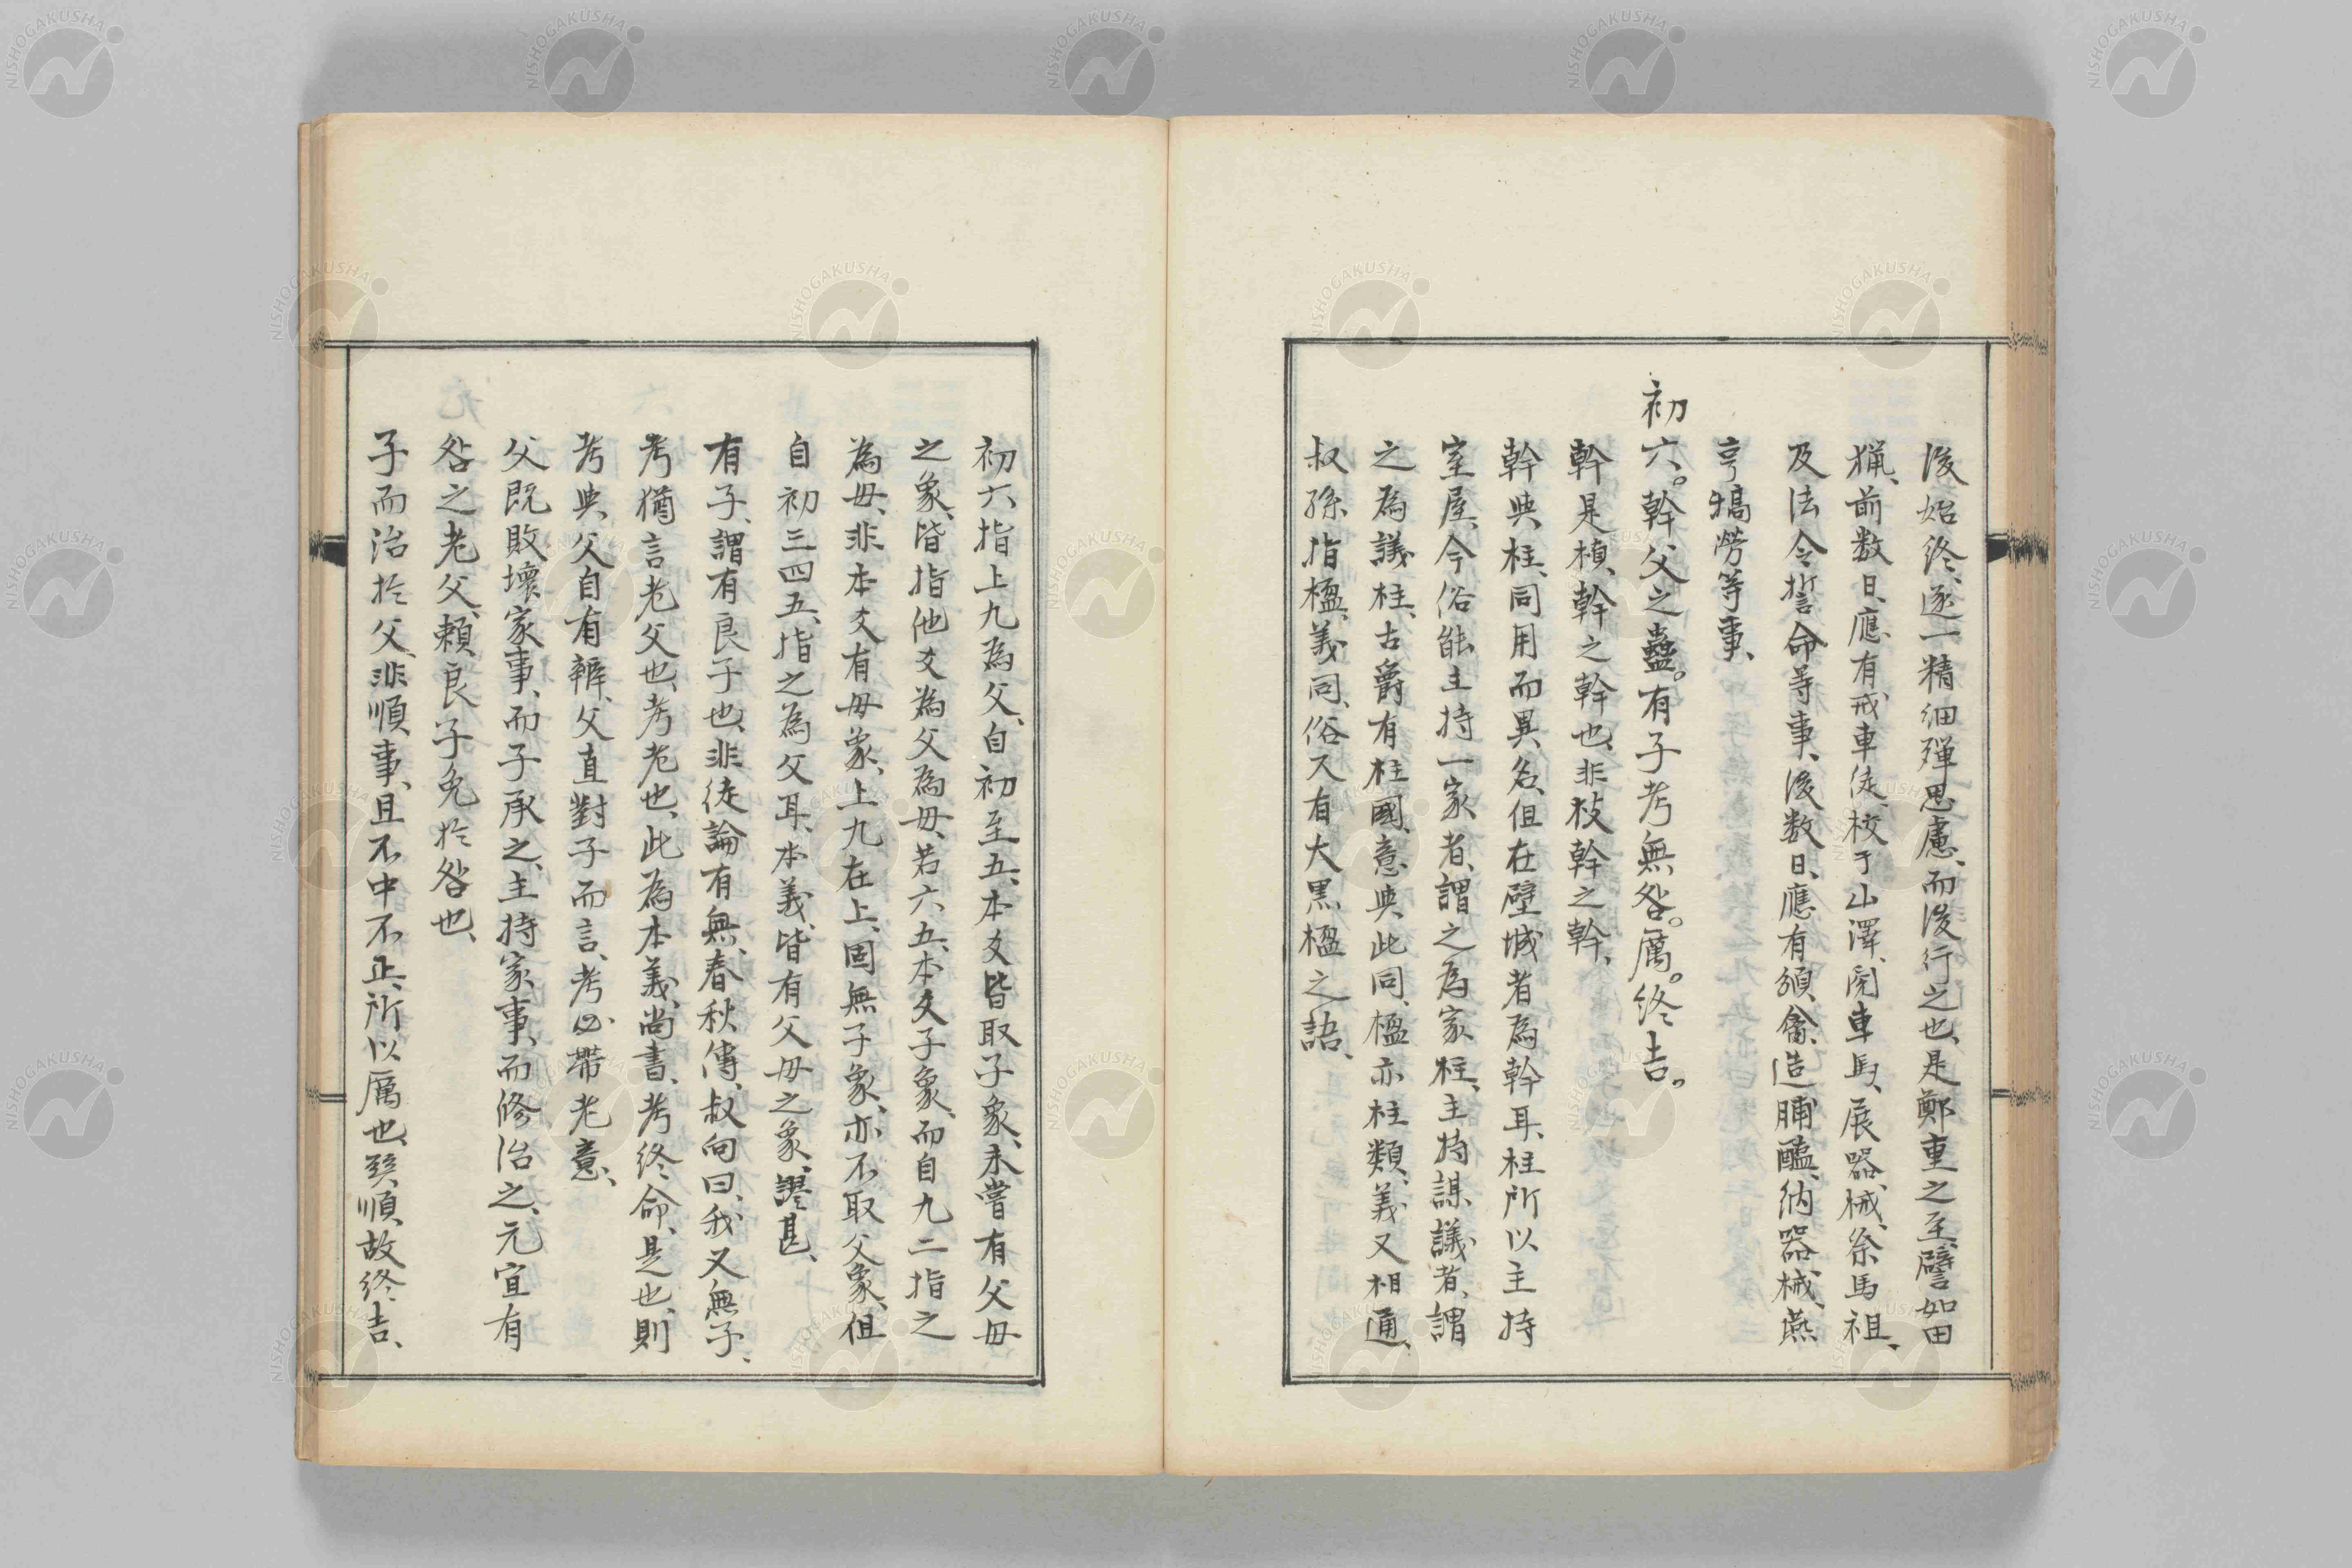 後始終、逐一精細殫思慮、而後行之也、是鄭重之至、譬如田
猟、前数日、應有戒車徒、校于山澤、閲車馬、展器械、祭馬祖、
及法令誓命等事、後数日、應有頒禽、造脯醢、納器械、燕
亨犒勞等事、
初六。幹父之蠱。有子考無咎。厲。終吉。
幹是楨幹之幹也、非枝幹之幹、
幹與柱、同用而異名、但在壁城者為幹耳、柱所以主持
室屋、今俗能主持一家者、謂之為家柱、主持謀議者、謂
之為議柱、古爵有柱國、意與此同、楹亦柱類、義又相通、
叔孫指楹、義同、俗又有大黒楹之語、
初六、指上九為父、自初至五、本爻皆取子象、未嘗有父母
之象、皆指他爻為父為毋、若六五、本爻子象、而自九二指之
為毋、非本爻有毋象、上九在上、固無子象、亦不取父象、但
自初三四五、指之為父耳、本義、皆有父毋之象、謬甚、
有子、謂有良子也、非徒論有無、春秋傳、叔向曰、我又無子、
考猶言老父也、考老也、此為本義、尚書、考終命、是也、則
考與父自有辨、父直對子而言、考必帶老意、
父既敗壞家事、而子承之、主持家事、而脩治之、元宜有
咎之老父、頼良子免於咎也、
子而治於父、非順事、且不中不正、所以厲也、巽順、故終吉、
NISHOGAKUSHA